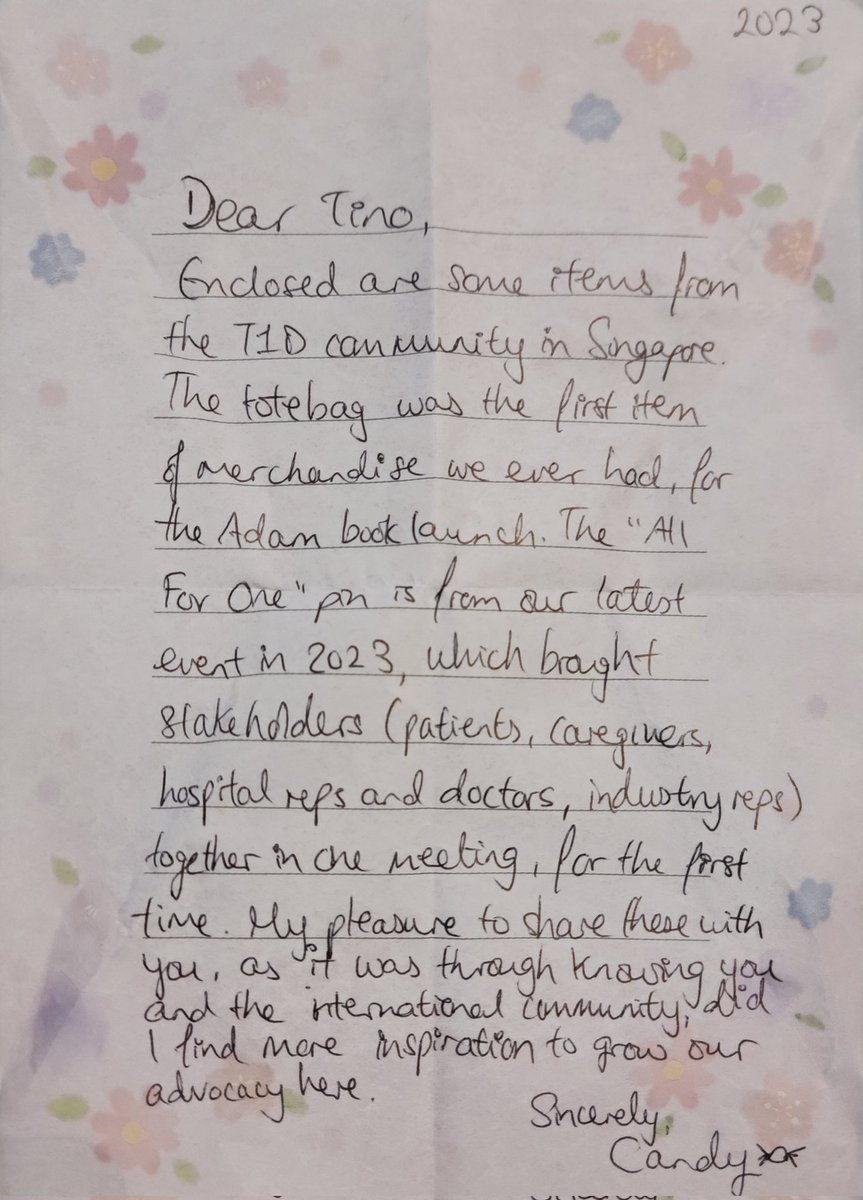 2023
Dear Tino,
Enclosed are some items from
the T1D community in Singapore.
The totebag was the first item
of merchandise we ever had, for
the Adam book launch. The "All
For One" pin is from our latest
event in 2023, which brought
stakeholders (patients, caregivers,
hospital reps and doctors, industry reps)
together in one meeting, for the first
time. My pleasure to share these with
you, as it was through knowing you
and the international community, did
I find more inspiration to grow our
advocacy here.
Sincerely,
Candy